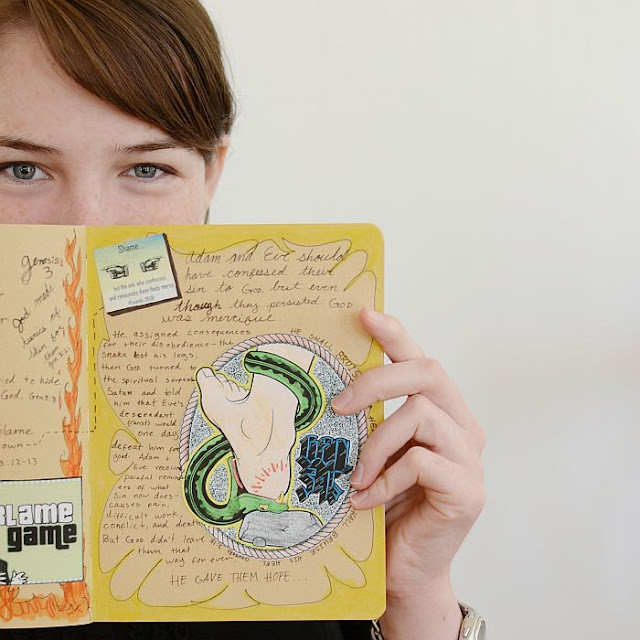 Genesis
3
God made
tunics of
skin for
them
Gen. 3:21
to hide
God. Gen 3:8
blame
3:12-13
BLAME
game
Shame...
but the one who confesses
and renounces them finds mercy.
Proverbs 28:13
Adam and Eve should
have confessed their
sin to God, but even
though they persisted God
was merciful.
He assigned consequences
for their disobedience - the
snake lost his legs,
then God turned to
the spiritual serpent
Satan and told
him that Eve's
descendant
(Christ) would
one day
defeat him for
good. Adam &
Eve received
painful
of what
Sin now does
causes pain,
difficult work,
conflict, and death
But God didn't leave
them that
way forever
HE GAVE THEM HOPE...
HE SHALL
SHALL BRUISE HIS HEEL